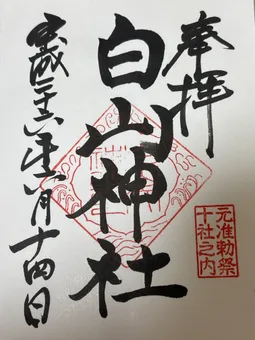 奉拝
白山神社
平成二十六年六月十四日
元准勅祭
十社之内